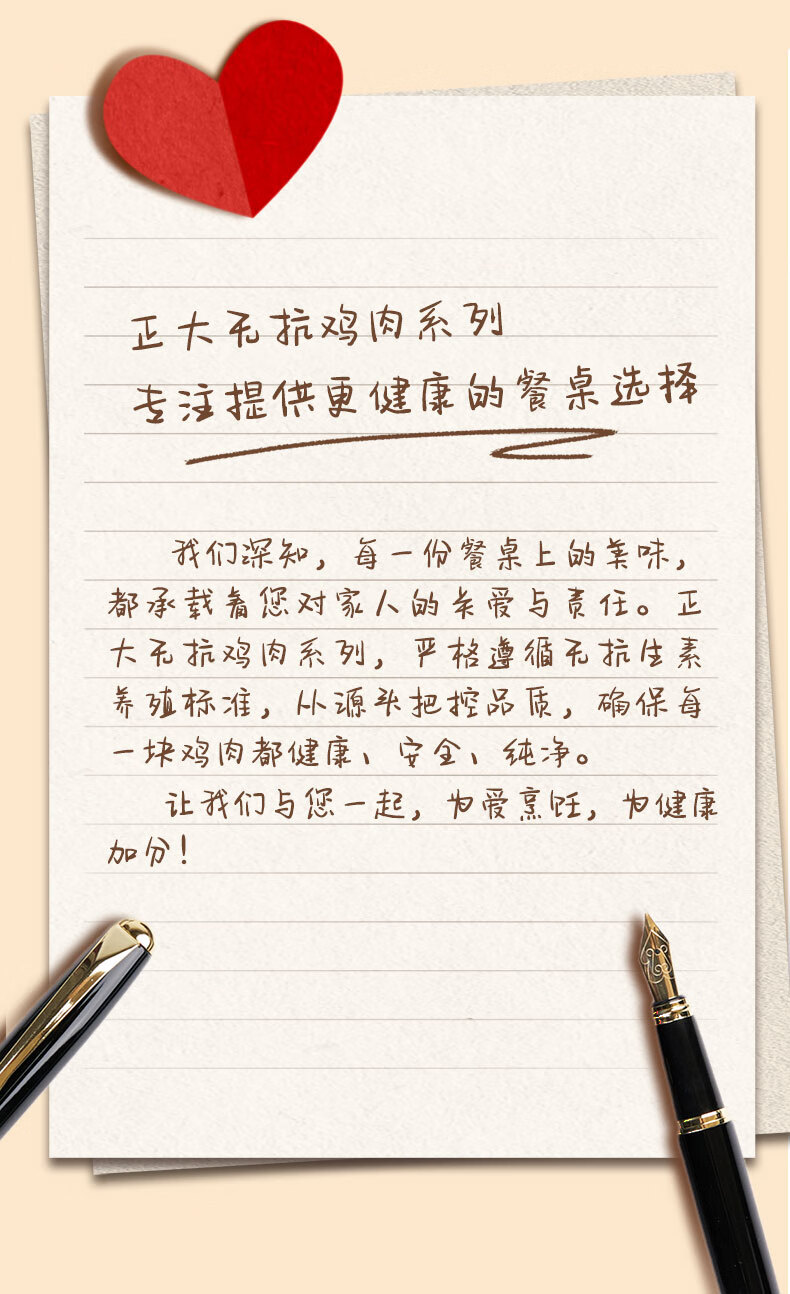 正大无抗鸡肉系列
专注提供更健康的餐桌选择
我们深知，每一份餐桌上的美味，
都承载着您对家人的关爱与责任。正
大无抗鸡肉系列，严格遵循无抗生素
养殖标准，从源头把控品质，确保每
一块鸡肉都健康、安全、纯净。
让我们与您一起，为爱烹饪，为健康
加分！